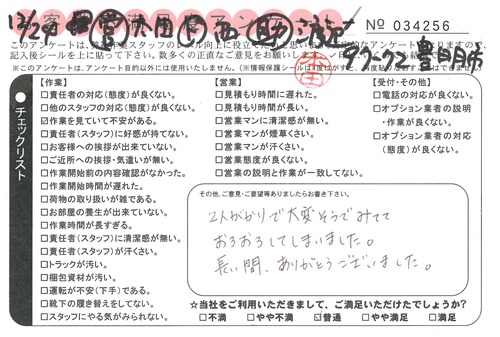 12/24
No 034256
記入後シールを上に貼って下さい。
※このアンケートは、アンケート目的以外には使用いたしません。
チェックリスト
【作業】
□責任者の対応(態度)が良くない。
□他のスタッフの対応(態度)が良くない。
☑作業を見ていて不安がある。
□責任者(スタッフ)に好感が持てない。
□お客様への挨拶が出来ていない。
□ご近所への挨拶・気遣いが無い。
□作業開始前の内容確認がなかった。
□作業開始時間が遅れた。
□荷物の取り扱いが雑である。
□お部屋の養生が出来ていない。
□作業時間が長すぎる。
□責任者(スタッフ)に清潔感が無い。
□責任者(スタッフ)が汗くさい。
□トラックが汚い。
□梱包資材が汚い。
□運転が不安(下手)である。
□靴下の履き替えをしてない。
□スタッフにやる気がみられない。
【営業】
□見積もり時間に遅れた。
□見積もり時間が長い。
□営業マンに清潔感が無い。
□営業マンが煙草くさい。
□営業マンが汗くさい。
□営業態度が良くない。
□営業の説明と作業が一致してない。
【受付・その他】
□電話の対応が良くない。
□オプション業者の説明
・作業が良くない。
□オプション業者の対応
(態度)が良くない。
その他、ご意見・ご要望等ありましたらお書き下さい。
2人がかりで大変そうでみてて
おろおろしてしまいました。
長い間、ありがとうございました。
☆当社をご利用いただきまして、ご満足いただけたでしょうか?
□不満 □やや不満 ☑普通 □やや満足 □満足